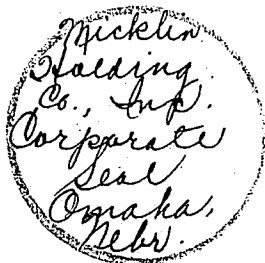 Micklin
Holding
Co., Inc.
Corporate
Seal
Omaha,
Nebr.